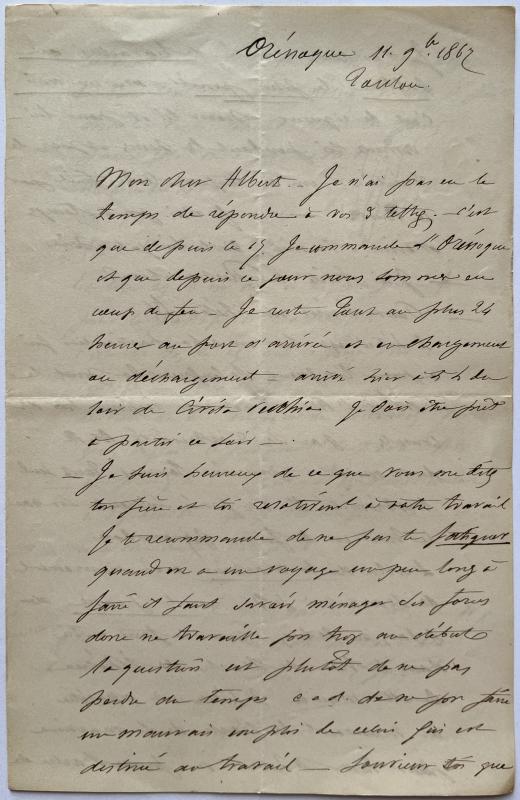 Orénoque 11. 9bre 1867
Toulon.
Mon cher Albert. Je n'ai pas eu le
temps de répondre à vos 3 lettres. c'est
que depuis le 19. Je commande l'Orénoque
et que depuis ce jour nous sommes en
coup de feu _ Je reste tout au plus 24
heures au port d'arrivée et en chargement
ou déchargement _ arrivé hier à 5 h du
soir de Civita Vecchia Je dois être prêt
à partir ce soir _ .
_ Je suis heureux de ce que vous me dites
ton frère et toi relativement à votre travail
Je te recommande de ne pas te fatiguer
quand on a un voyage un peu long à
faire il faut savoir ménager ses forces
donc ne travaille pas trop au début
la question est plutôt de ne pas
perdre de temps c. a d. de ne pas faire
un mauvais emploi de celui qui est
destiné au travail _ Souviens toi que